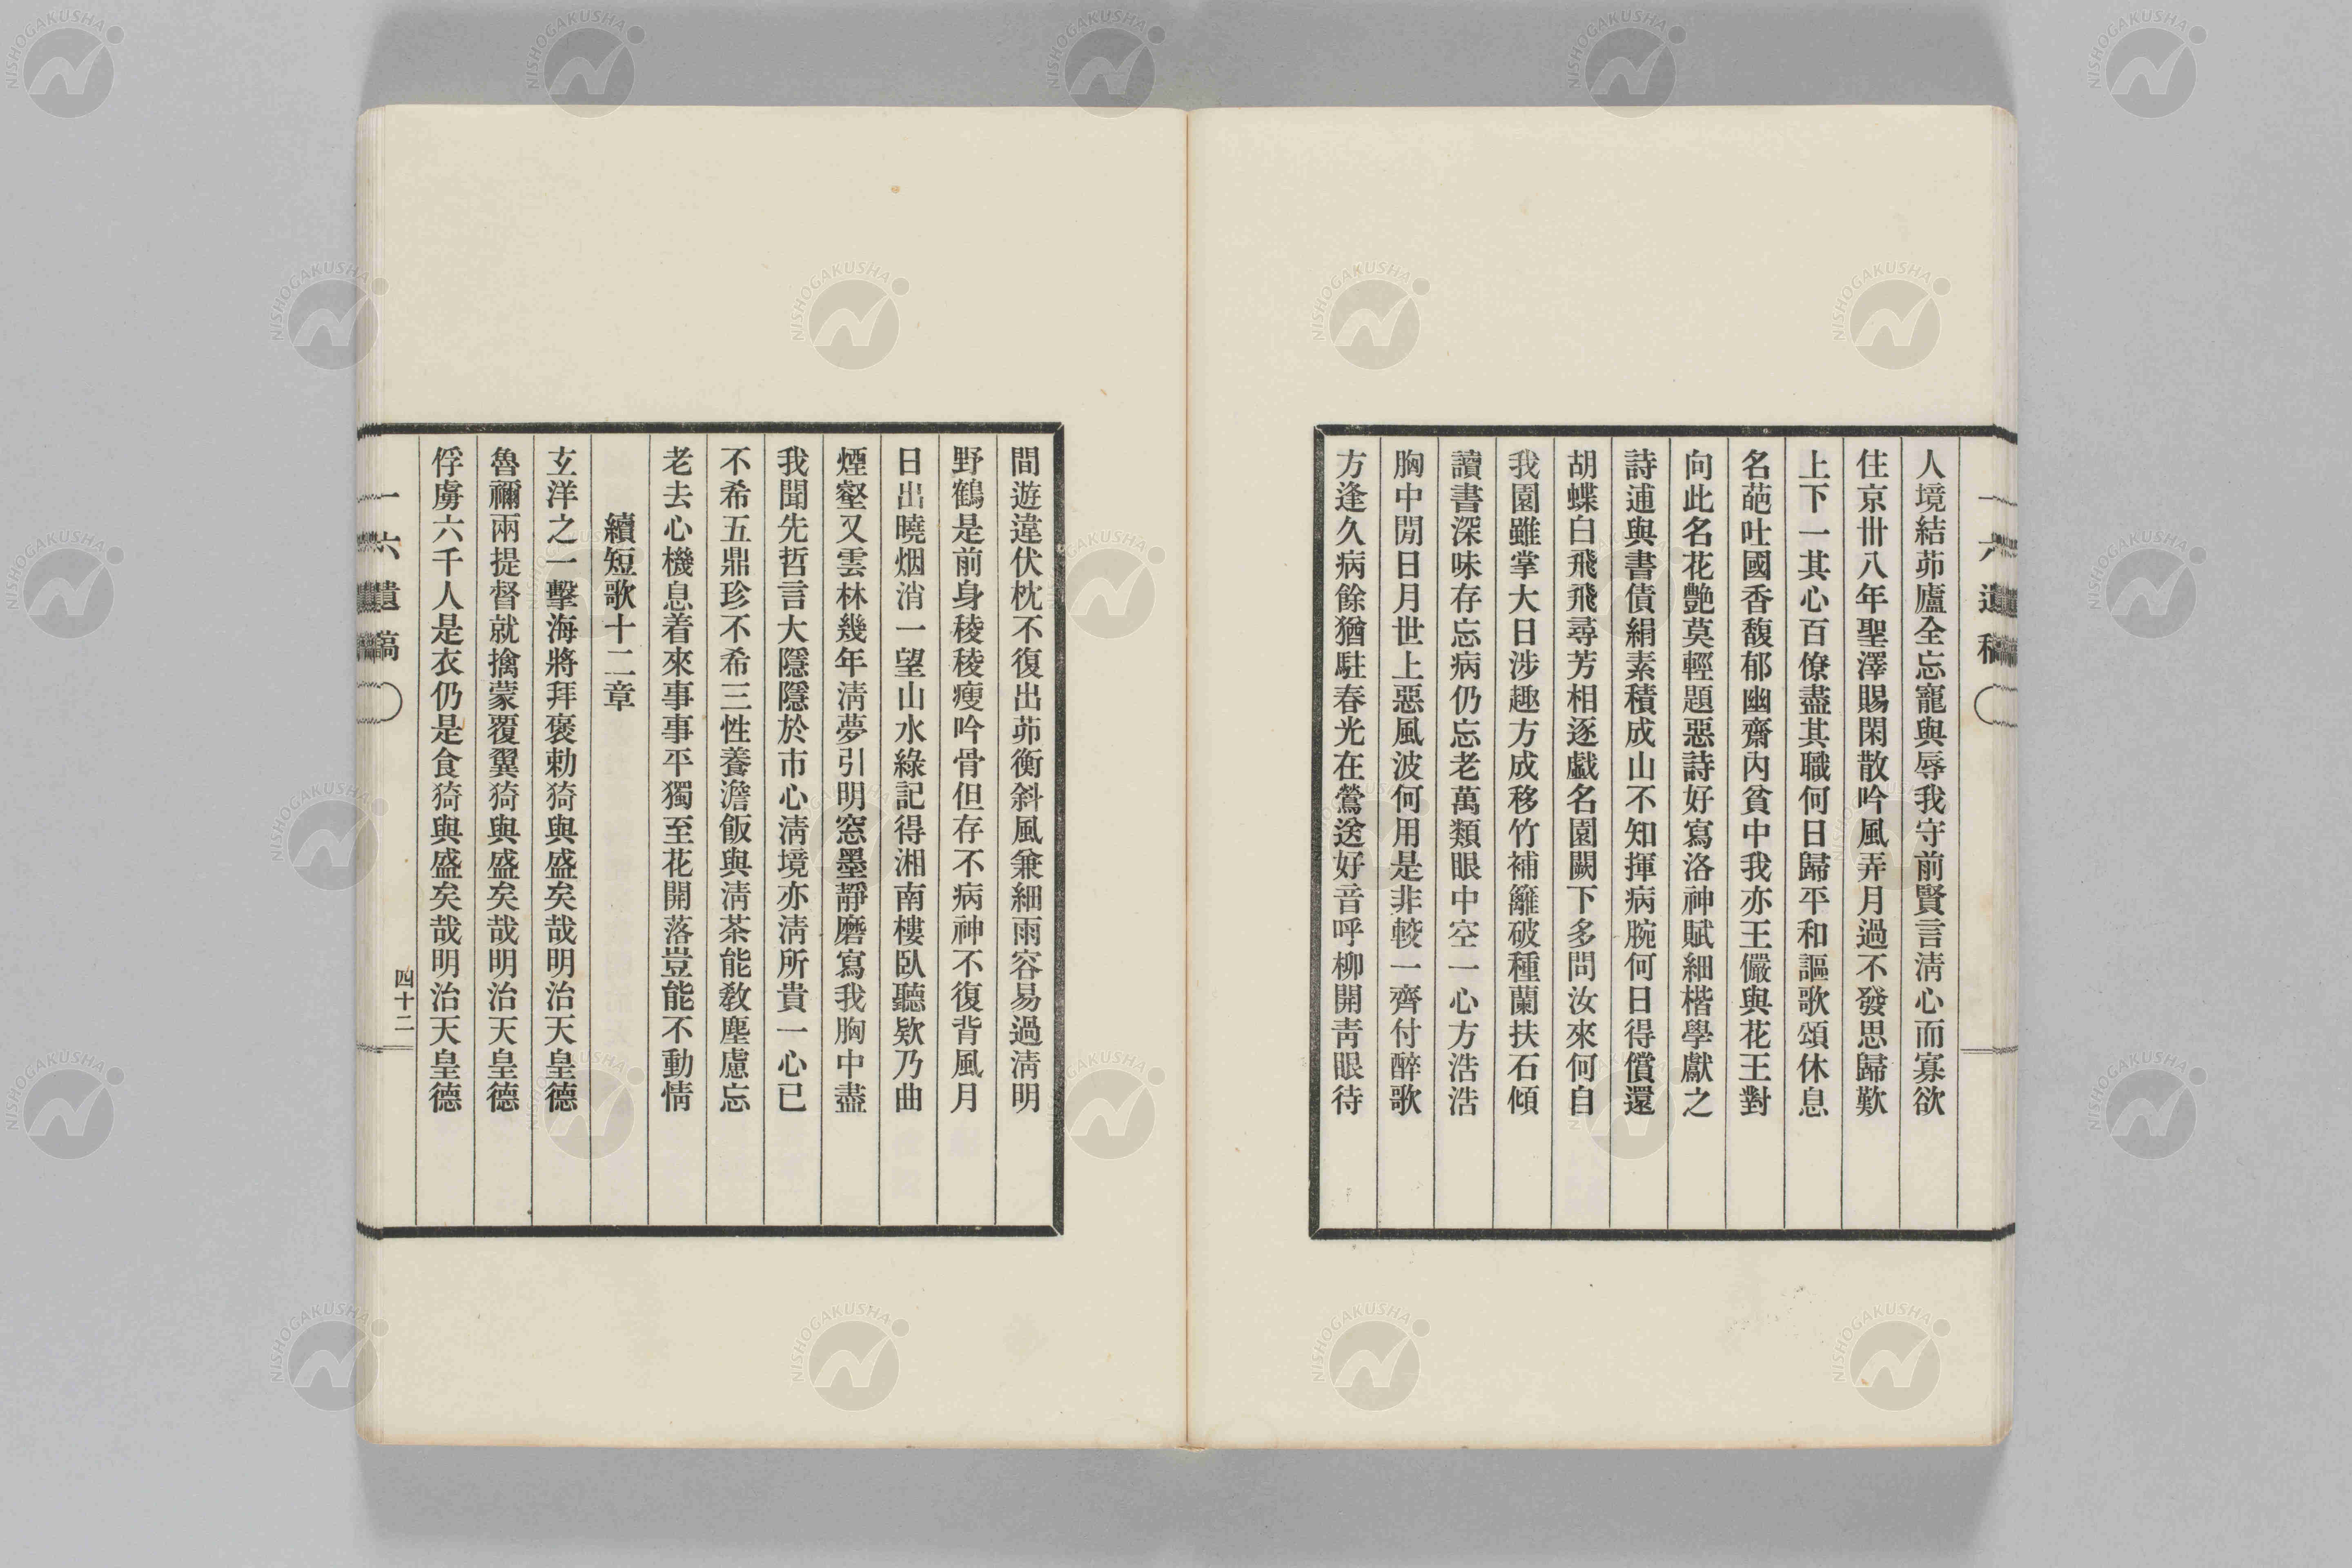 人境結茆廬全忘寵與辱我守前賢言淸心而寡欲
住京卅八年聖澤賜閑散吟風弄月過不發思歸歎
上下一其心百僚盡其職何日歸平和謳歌頌休息
名葩吐國香馥郁幽齋內貧中我亦王儼與花王對
向此名花艶莫輕題惡詩好寫洛神賦細楷學獻之
詩逋與書債絹素積成山不知揮病腕何日得償還
胡蝶白飛飛尋芳相逐戱名園闕下多問汝來何自
我園雖掌大日涉趣方成移竹補籬破種蘭扶石傾
讀書深味存忘病仍忘老萬類眼中空一心方浩浩
胸中閒日月世上惡風波何用是非較一齊付醉歌
方逢久病餘猶駐春光在鶯送好音呼柳開靑眼待
一六遺稿
間遊違伏枕不復出茆衡斜風兼細雨容易過淸明
野鶴是前身稜稜瘦吟骨但存不病神不復背風月
日出曉烟消一望山水綠記得湘南樓臥聽欵乃曲
煙壑又雲林幾年淸夢引明窓墨靜磨寫我胸中盡
我聞先哲言大隱隱於市心淸境亦淸所貴一心已
不希五鼎珍不希三性養澹飯與淸茶能敎塵慮忘
老去心機息着來事事平獨至花開落豈能不動情
續短歌十二章
玄洋之一擊海將拜褒勅猗與盛矣哉明治天皇德
魯禰兩提督就擒蒙覆翼猗與盛矣哉明治天皇德
俘虜六千人是衣仍是食猗與盛矣哉明治天皇德
一六遺稿
四十二
NISHOGAKUSHA